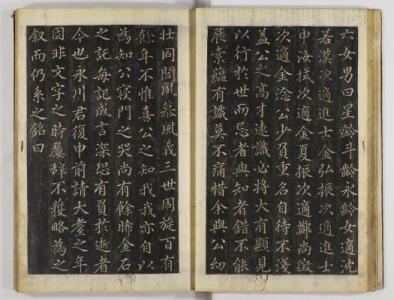 六女男曰星齡斗齡永齡女適沈
若漢次適進士金弘振次適進士
申海拭次適金夏振次適鄭尚徵
次適金淰公少負重名自待不淺
蓋公之高才遠識必將大有顯見
以行於世而忌者與知者錯不能
展素蘊有識莫不痛惜余與公幼
壯同閈夙慕風義三世周旋百有
餘年不惟喜公之知我我亦自以
為知公寢門之哭尚有餘晞金石
之託每記成言深恐有負於逝者
今也永川君復申前請大耋之年
固非文字之時屢辭不獲略為之
叙而仍系之銘曰